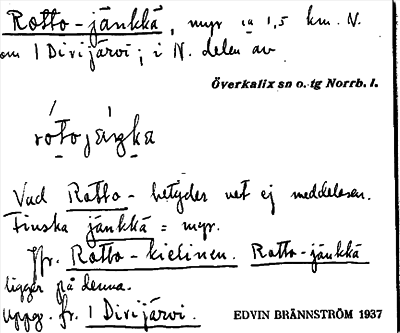 Rotto-jänkkä, myr ca 1,5 km. N.
om 1 Divijärvi; i N. delen av
Överkalix sn o. tg Norrb. l.
rótojáŋka
Vad Rotto- betyder vet ej meddelaren.
Finska jänkkä = myr.
Jfr. Rotto-kielinen. Rotto-jänkkä
ligger på denna.
Uppg. fr. 1 Divijärvi.
EDVIN BRÄNNSTRÖM 1937